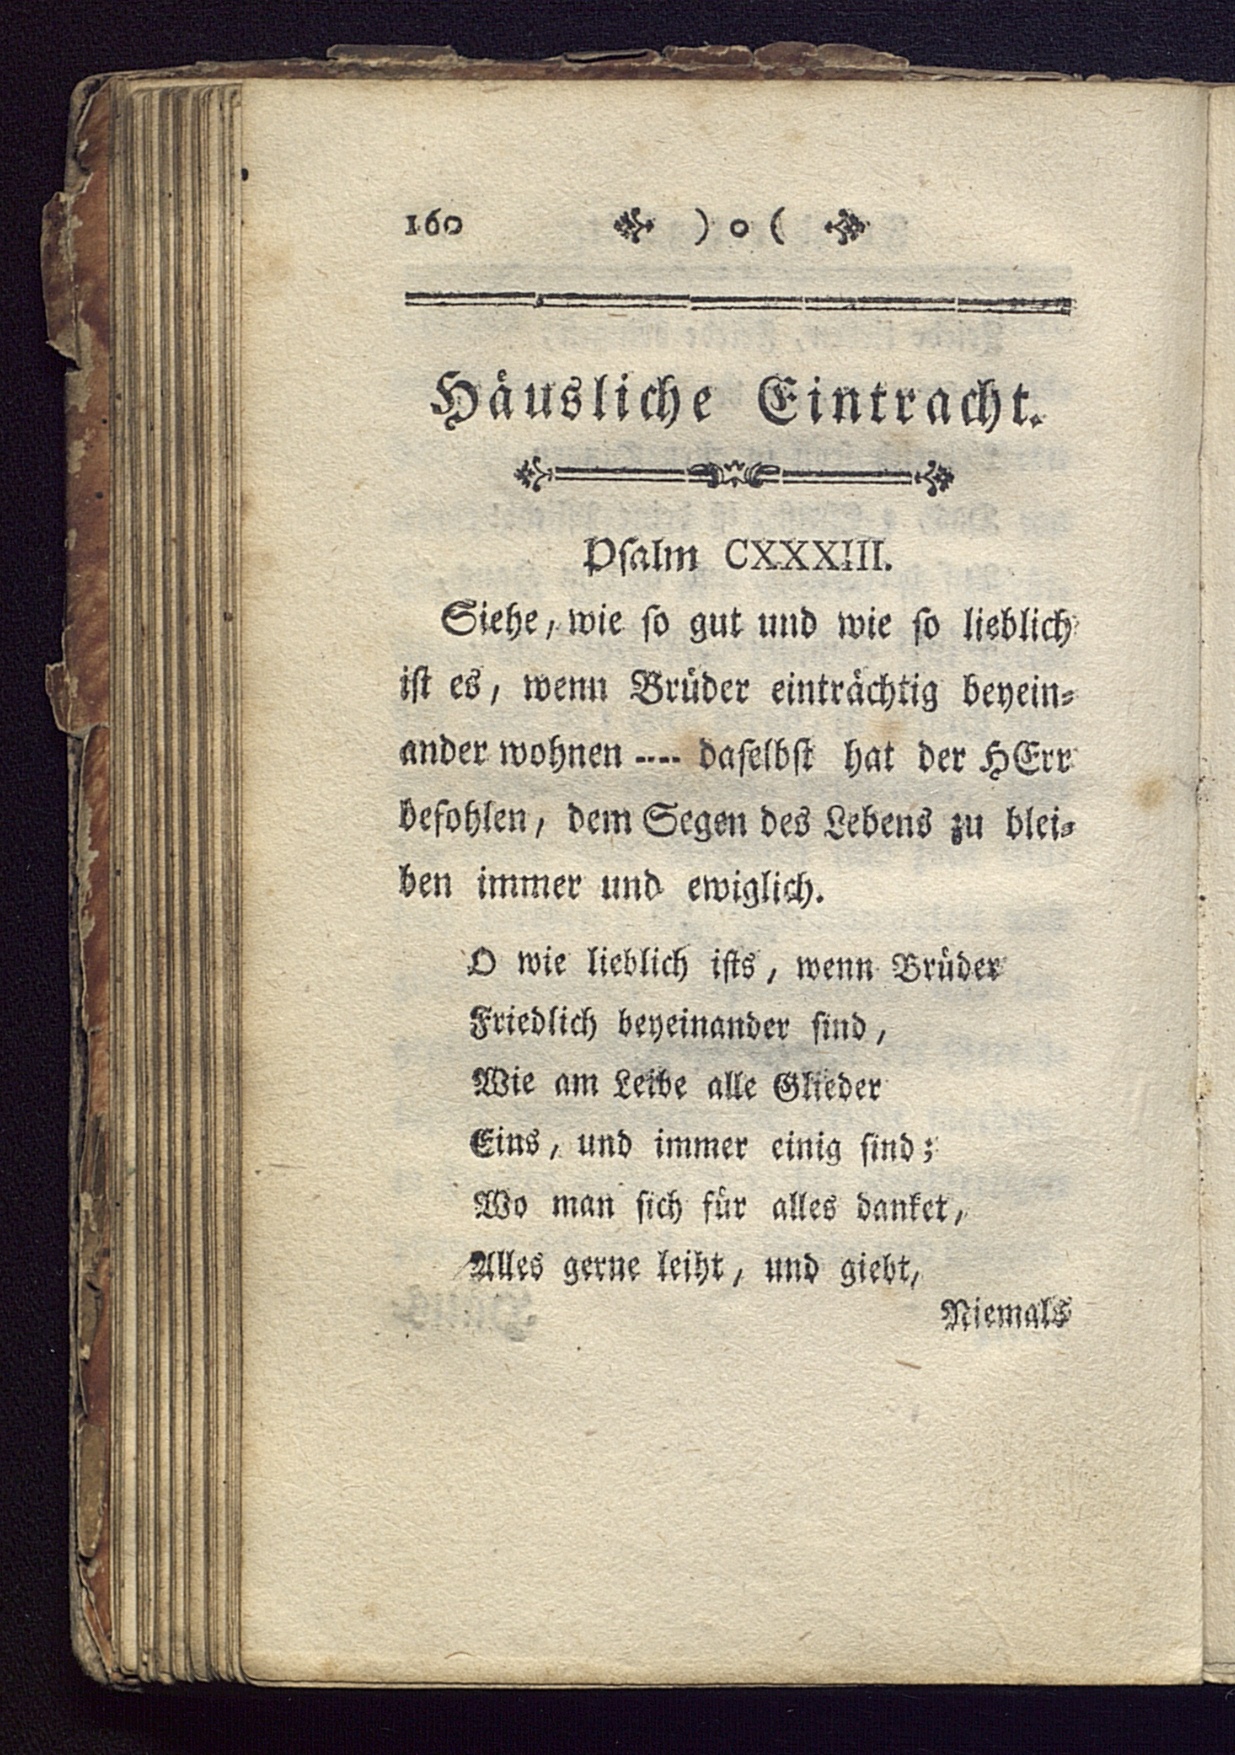 160 ) o (
Häusliche Eintracht.
Psalm CXXXIII.
Siehe, wie ſo gut und wie ſo lieblich
iſt es, wenn Brüder einträchtig beyein⸗
ander wohnen ---- daſelbſt hat der HErr
befohlen, dem Segen des Lebens zu blei⸗
ben immer und ewiglich.
O wie lieblich iſts, wenn Brüder
Friedlich beyeinander ſind,
Wie am Leibe alle Glieder
Eins, und immer einig ſind;
Wo man ſich für alles danket,
Alles gerne leiht, und giebt,
Niemals